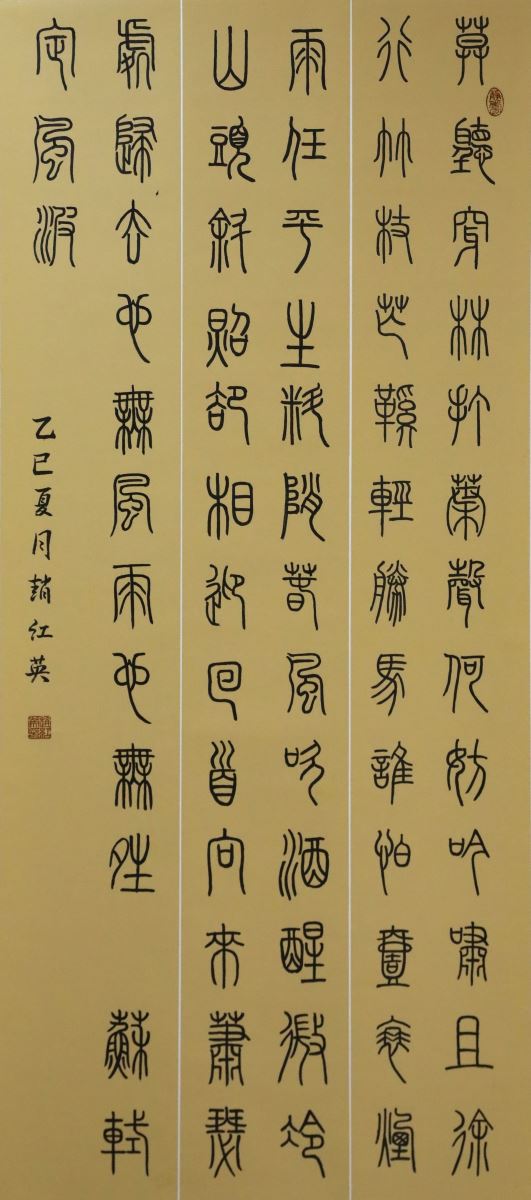 莫聽穿林打葉聲何妨吟嘯且徐
行竹杖芒鞵輕勝馬誰怕壹蓑煙
雨任平生料陗春風吹酒醒微冷
山頭斜照卻相迎回首向來蕭瑟
處歸去也無風雨也無晴 蘇軾
定風波
乙巳夏月趙紅英